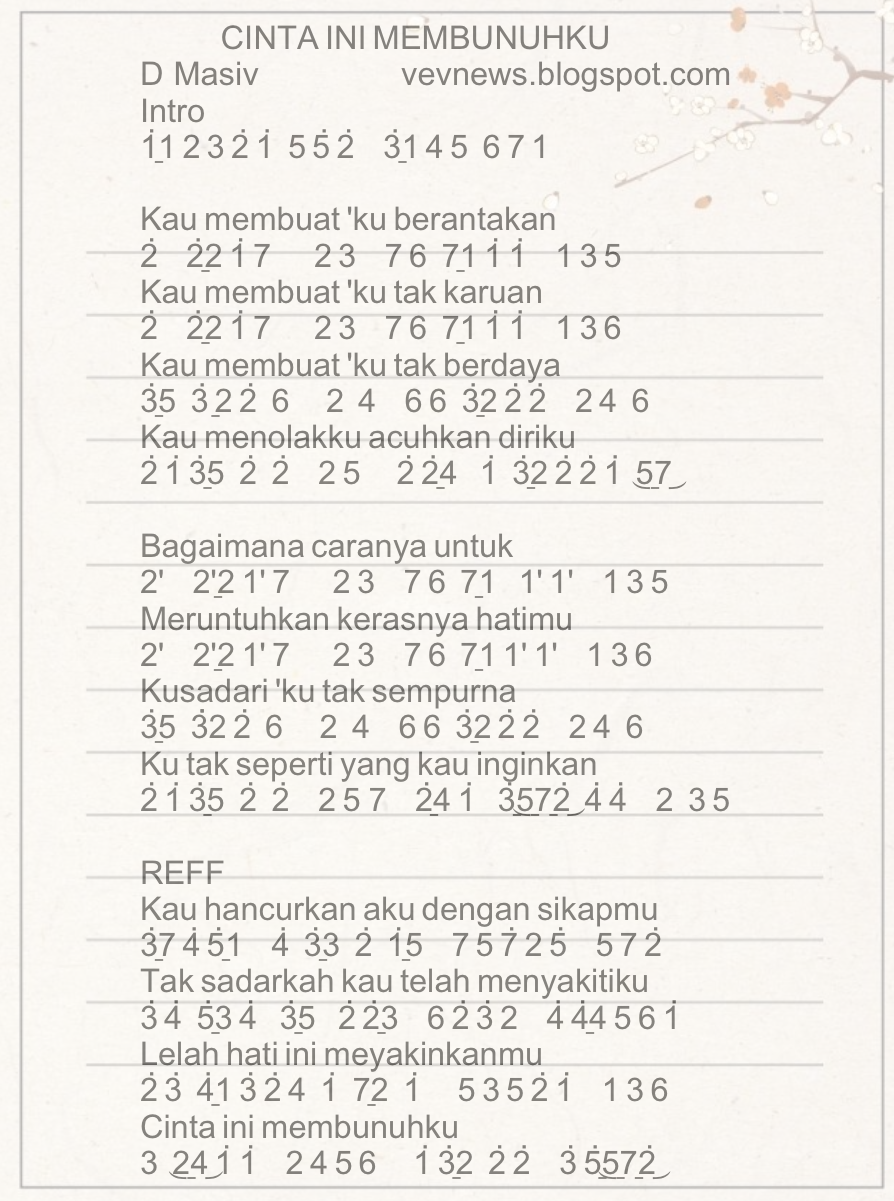 CINTA INI MEMBUNUHKU
D Masiv vevnews.blogspot.com
Intro
1̇1̲ 2 3 2̇ 1̇ 5 5̇ 2̇ 3̇1̲ 4 5 6 7 1
Kau membuat 'ku berantakan
2̇ 2̇2̲ 1̇ 7 2 3 7 6 71̲ 1̇ 1̇ 1 3 5
Kau membuat 'ku tak karuan
2̇ 2̇2̲ 1̇ 7 2 3 7 6 71̲ 1̇ 1̇ 1 3 6
Kau membuat 'ku tak berdaya
3̇5̲ 3̇ 2̲ 2̇ 6 2 4 6 6 3̇2̲ 2̇ 2̇ 2 4 6
Kau menolakku acuhkan diriku
2̇ 1̇ 3̇5̲ 2̇ 2̇ 2 5 2̇ 2̇4̲ 1̇ 3̇2̲ 2̇ 2̇ 1̇ 57̲
Bagaimana caranya untuk
2' 2'2̲ 1' 7 2 3 7 6 71̲ 1' 1' 1 3 5
Meruntuhkan kerasnya hatimu
2' 2'2̲ 1' 7 2 3 7 6 71̲ 1' 1' 1 3 6
Kusadari 'ku tak sempurna
3̇5̲ 3̇2 2̇ 6 2 4 6 6 3̇2̲ 2̇ 2̇ 2 4 6
Ku tak seperti yang kau inginkan
2̇ 1̇ 3̇5̲ 2̇ 2̇ 2 5 7 2̇4̲ 1̇ 3̇5̲7̲2̲̇ 4̇ 4̇ 2 3 5
REFF
Kau hancurkan aku dengan sikapmu
3̇7̲ 4̇ 5̇1̲ 4̇ 3̇3̲ 2̇ 1̇5̲ 7 5 7̇ 2 5̇ 5 7 2̇
Tak sadarkah kau telah menyakitiku
3̇ 4̇ 5̇3̲ 4̇ 3̇5̲ 2̇ 2̇3̲ 6 2̇ 3̇ 2̇ 4̇ 4̇4̲ 5 6 1̇
Lelah hati ini meyakinkanmu
2̇ 3̇ 4̇1̲ 3̇ 2̇ 4 1̇ 72̲̇ 1̇ 5 3 5 2̇ 1̇ 1 3 6
Cinta ini membunuhku
3 2̇4̲ 1̇ 1̇ 2 4 5 6 1̇ 3̇2̲ 2̇ 2̇ 3̇ 5̇5̲7̲2̲̇